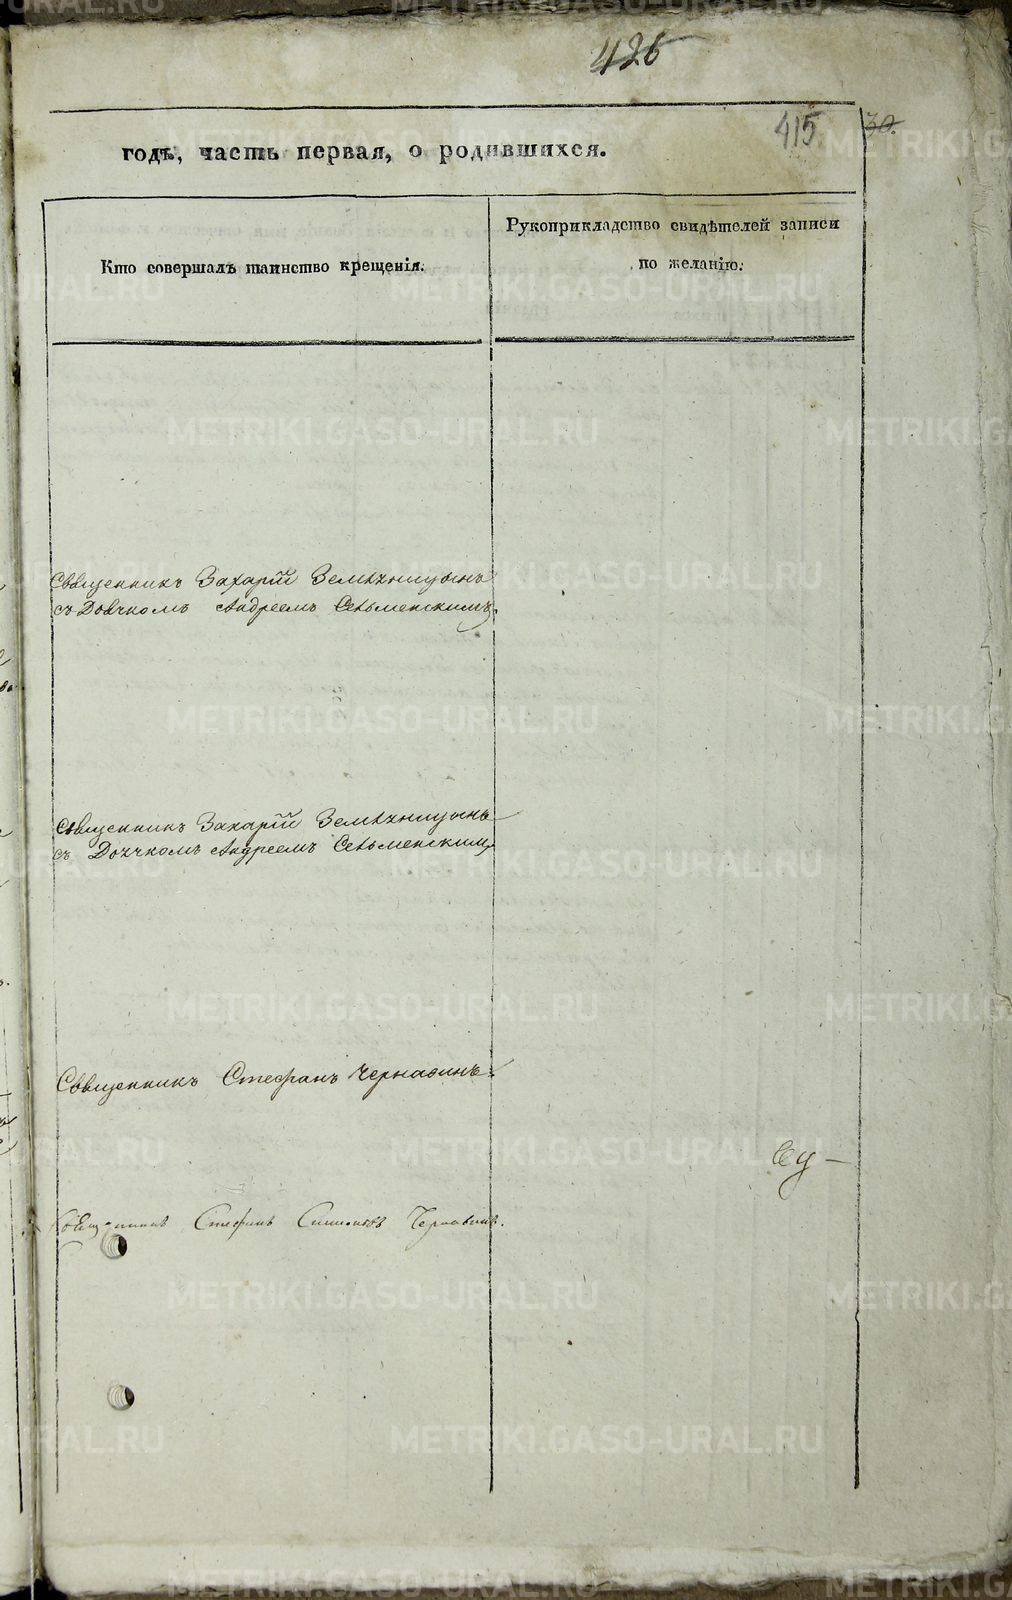 426
415
30.
годъ, часть первая, о родившихся.
Кто совершалъ таинство крещенія.
Рукоприкладство свидѣтелей записи
по желанію.
Священникъ Захарій Землянницынъ
съ Дьячкомъ Андреемъ Сельменскимъ.
Священникъ Захарій Землянницынъ
съ Дьячкомъ Андреемъ Сельменскимъ
Священникъ Стефанъ Чернавинъ.
Су-
Священникъ Стефанъ Чернавинъ.
METRIKI.GASO-URAL.RU